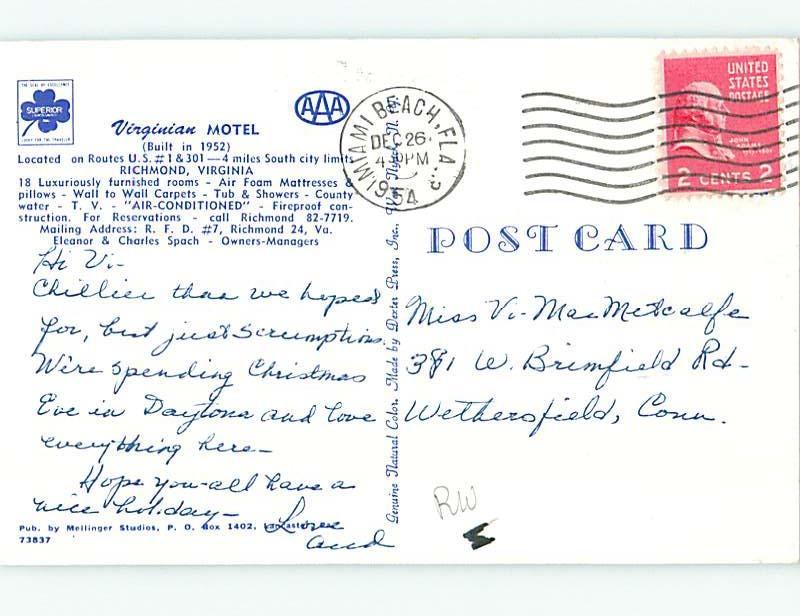 THE SEAL OF EXCELLENCE
SUPERIOR
AAA
Virginian MOTEL
(Built in 1952)
Located on Routes U.S. #1 & 301—4 miles South city limits
RICHMOND, VIRGINIA
18 Luxuriously furnished rooms - Air Foam Mattresses &
pillows - Wall to Wall Carpets - Tub & Showers - County
water - T. V. - "AIR-CONDITIONED" - Fireproof con-
struction. For Reservations - call Richmond 82-7719.
Mailing Address: R. F. D. #7, Richmond 24, Va.
Eleanor & Charles Spach - Owners-Managers
Hi Vi-
Chillier than we hoped
for, but just scrumptious.
We're spending Christmas
Eve in Daytona and love
everything here-
Hope you-all have a
nice holiday- Love
Pub. by Mellinger Studios, P. O. Box 1402, Lancaster
73837
Genuine Natural Color, Made by Dexter Press, Inc., West Nyack, N. Y.
MIAMI BEACH, FLA.
DEC 26
PM
1954
UNITED
STATES
POSTAGE
JOHN
ADAMS
2 CENTS 2
POST CARD
Miss Vi-Mae Metcalfe
381 W. Brimfield Rd-
Wethersfield, Conn.
RW